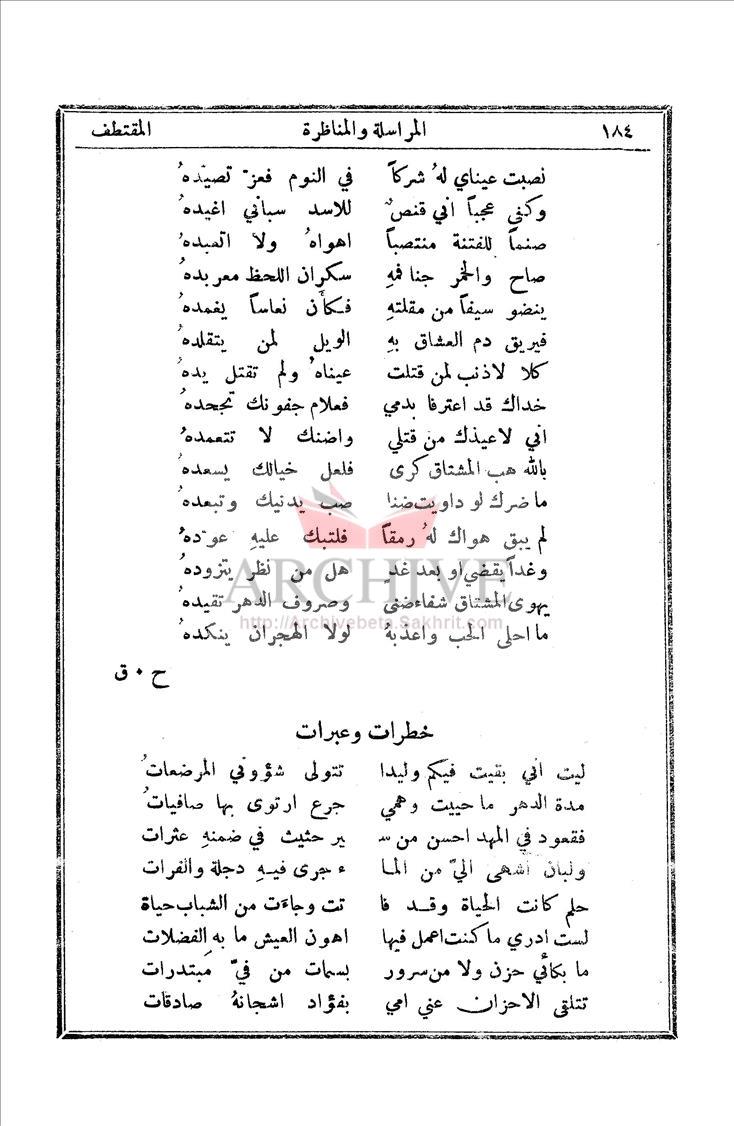 ١٨٤ المراسلة والمناظرة المقتطف
نصبت عيناي لهُ شركاً في النوم فعزّ تصيّدهُ
وكفى عجباً اني قنصٌ للاسد سباني اغيدهُ
صنماً للفتنة منتصباً اهواهُ ولا اتعبدهُ
صاح والخمر جنا فمهِ سكران اللحظ معربدهُ
ينضو سيفاً من مقلتهِ فكأن نعاساً يغمدهُ
فيريق دم العشاق بهِ الويل لمن يتقلدهُ
كلا لاذنب لمن قتلت عيناهُ ولم تقتل يدهُ
خداك قد اعترفا بدمي فعلام جفونك تجحدهُ
اني لاعيذك من قتلي واضنك لا تتعمدهُ
بالله هب المشتاق كرى فلعل خيالك يسعدهُ
ما ضرك لو داويت ضنا صب يدنيك وتبعدهُ
لم يبق هواك لهُ رمقاً فلتبك عليهِ عوّدهُ
وغداً يقضي او بعد غدٍ هل من نظر يتزودهُ
يهوى المشتاق شفاء ضنى وصروف الدهر تقيدهُ
ما احلى الحب واعذبهُ لولا الهجران ينكدهُ
ح ٠ ق
خطرات وعبرات
ليت اني بقيت فيكم وليدا تتولى شؤوني المرضعاتُ
مدة الدهر ما حييت وهمي جرع ارتوى بها صافياتُ
فقعود في المهد احسن من سـ ير حثيث في ضمنهِ عثرات
ولبان أشهى اليّ من المـا ء جرى فيهِ دجلة والفرات
حلم كانت الحياة وقد فا تت وجاءَت من الشباب حياة
لست ادري ما كنت اعمل فيها اهون العيش ما به الفضلات
ما بكائي حزن ولا من سرور بسمات من فيّ مبتدرات
تتلقى الاحزان عني امي بفؤاد اشجانهُ صادقات
ARCHIVE
http://Archivebeta.Sakhrit.com